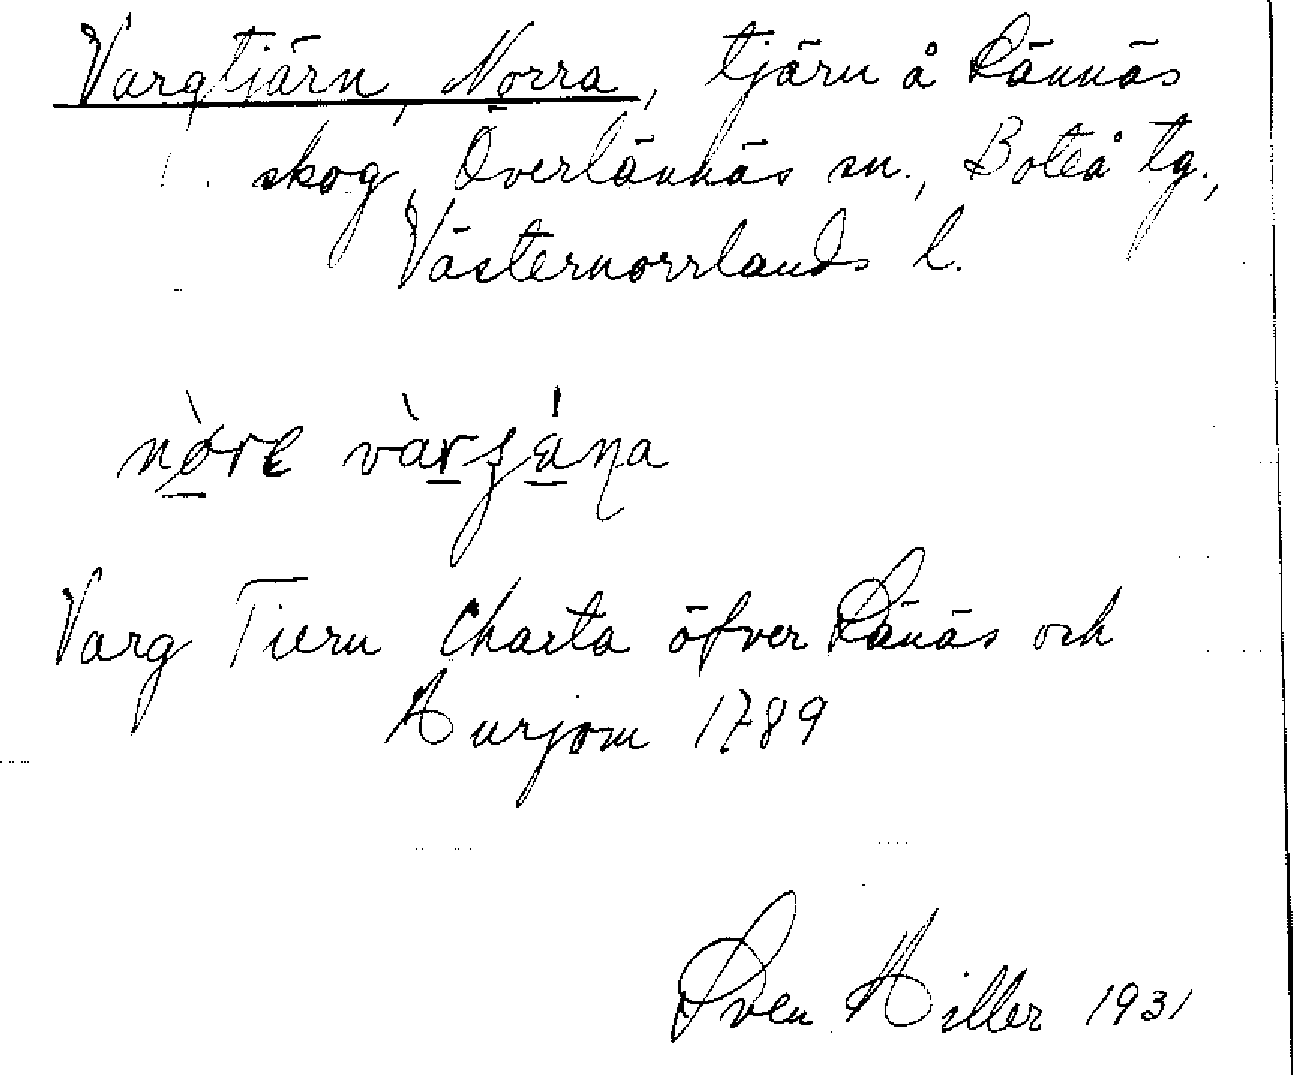 Vargtjärn, Norra, tjärn å Rännäs
skog, Överlännäs sn., Boteå tg.,
Västernorrlands l.
nòre vàrʃána
Varg Tiern Charta öfver Ränäs och
1789
Sven Hiller 1931